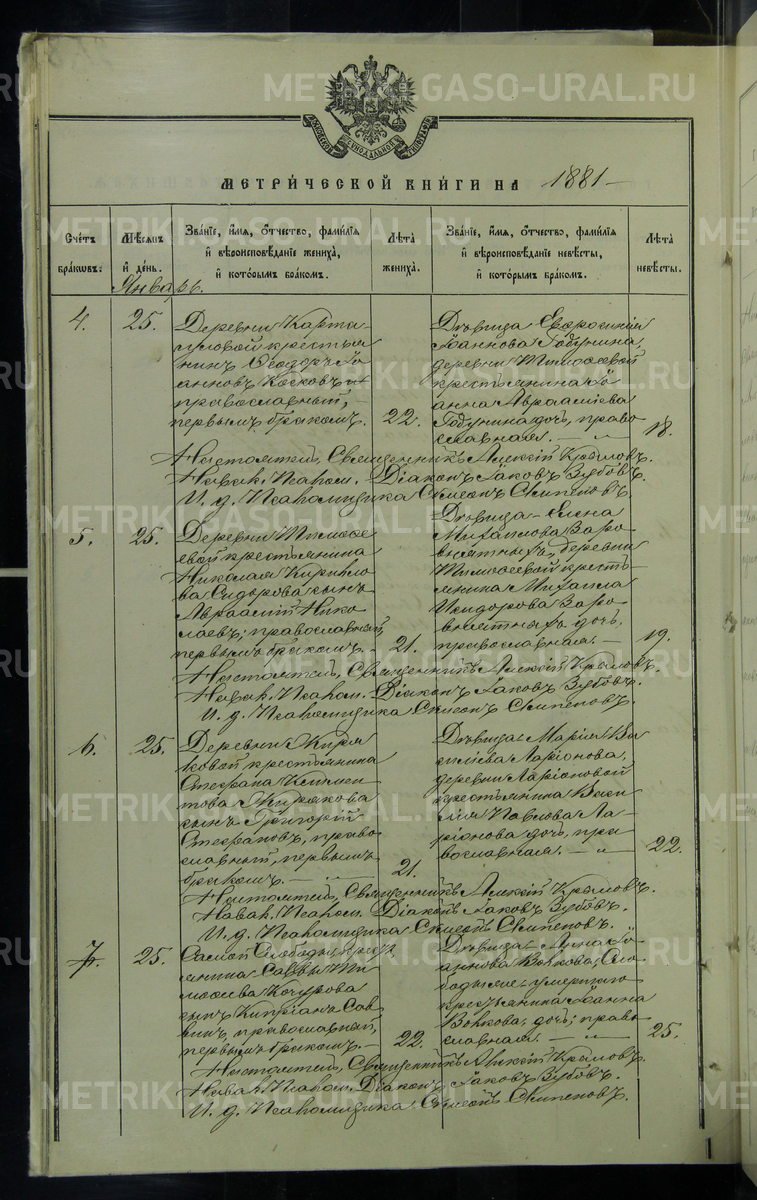 МЕТРИ́ЧЕСКОЙ КНИ́ГИ НА 1881
Сче́тъ бра́ковъ.
Мѣ́сяцъ и҆ де́нь.
Зва́нїе, и҆́мѧ, ѻ҆́тчество, фамилїѧ и҆ вѣроисповѣ́данїе жениха̀, и҆ кото́рымъ бра́комъ.
Лѣ́та жениха̀.
Зва́нїе, и҆́мѧ, ѻ҆́тчество, фамилїѧ и҆ вѣроисповѣ́данїе невѣ́сты, и҆ кото́рымъ бра́комъ.
Лѣ́та невѣ́сты.
Январь.
4.
25.
Деревни
крестья
нинъ Ѳеодоръ Іо
анновъ
православный,
первымъ бракомъ.
22.
Дѣвица Евфросинія
Іоаннова Годунина,
деревни Тимоѳеевой
крестьянина Іо
анна Авраамїева
Годунина дочь, право
славная.
18.
Настоятель, Священникъ Алексій
Псалом. Діаконъ Іаковъ Зубовъ.
И. д. Псаломщика Симеонъ
5.
25.
Деревни Тимоѳе
евой крестьянина
Николая Кирилло
ва Сидорова сынъ
Авраамій Нико
лаевъ, православный,
первымъ бракомъ.
21.
Дѣвица Елена
Михаилова
деревни
Тимоѳеевой кресть
янина Михаила
Исидорова
дочь,
православная.
19.
Настоятель, Священникъ Алексій
Псалом. Діаконъ Іаковъ Зубовъ.
И. д. Псаломщика Симеонъ
6.
25.
Деревни Жиря
ковой крестьянина
Стефана Климен
това Жирякова
сынъ Григорій
Стефановъ, право
славный, первымъ
бракомъ.
21.
Дѣвица Марія Ва
силіева Ларіонова,
деревни Ларіоновой
крестьянина Васи
лія Павлова Ла
ріонова дочь, пра
вославная.
22.
Настоятель, Священникъ Алексій
Псалом. Діаконъ Іаковъ Зубовъ.
И. д. Псаломщика Симеонъ
7.
25.
Самой Слободы крест
янина Саввы Ти
моѳеева Кочурова
сынъ Кипріанъ Сав
винъ, православный,
первымъ бракомъ.
22.
Дѣвица Анна Іо
аннова Волкова, Сло
боды умершаго
крестьянина Іоанна
Волкова, дочь, право
славная.
25.
Настоятель, Священникъ Алексій
Псалом. Діаконъ Іаковъ Зубовъ.
И. д. Псаломщика Симеонъ
METRIKI.GASO-URAL.RU